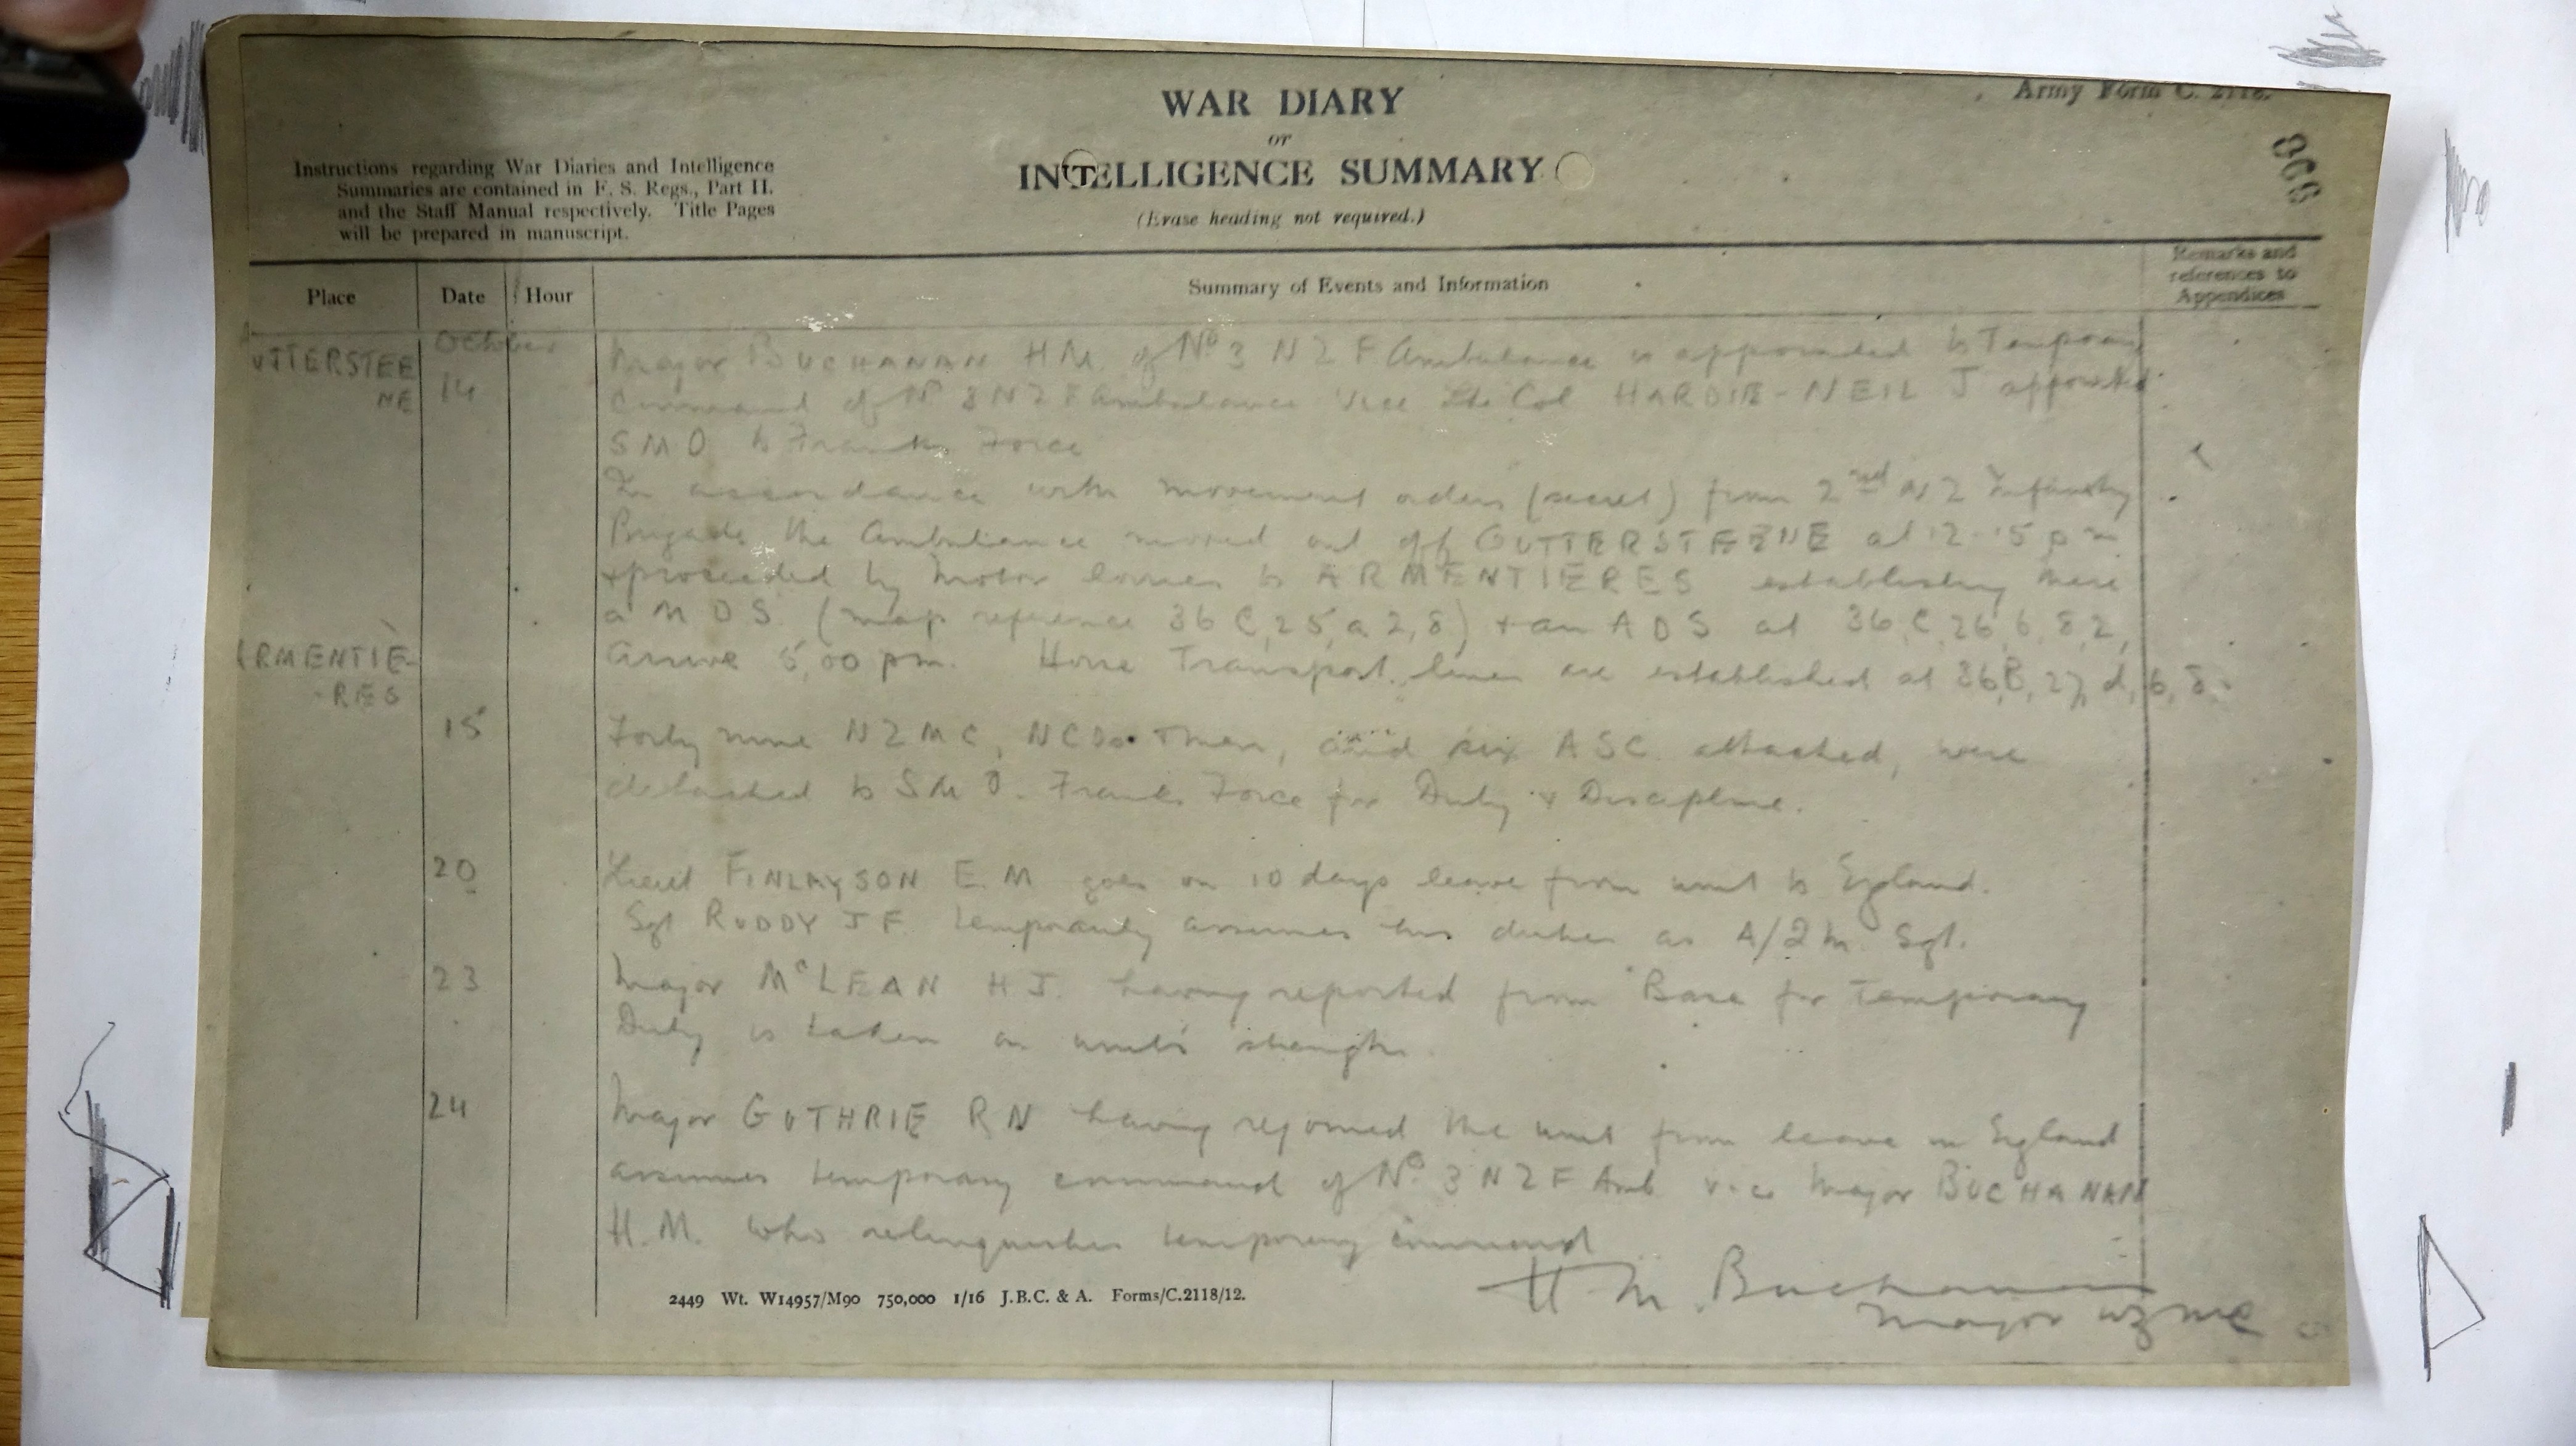 Army Form C. 2118.
WAR DIARY
or
INTELLIGENCE SUMMARY
(Erase heading not required.)
Instructions regarding War Diaries and Intelligence
Summaries are contained in F. S. Regs., Part II.
and the Staff Manual respectively. Title Pages
will be prepared in manuscript.
Place Date Hour Summary of Events and Information Remarks and
references to
Appendices
October
UTTERSTEE
NE
14
Major BUCHANAN H M. of No 3 N Z F Ambulance is appointed to Temporary
Command of No 3 N Z F Ambulance vice Lt Col HARDIE-NEIL J appointed
S M O to Franks Force
In accordance with movement orders (secret) from 2nd N Z Infantry
Brigade the Ambulance moved out off OUTTERSTEENE at 12.15 pm
+ proceeded by motor lorries to ARMENTIERES establishing there
a M D S. (map reference 36 C, 25, a 2, 8) + an A D S at 36, C, 26, b, 8 2,
RMENTIE-
-RES
Arrive 5,00 pm. Horse Transport lines are established at 36, B, 27, d, 6, 8.
15 Forty nine N Z M C, NCOs + men, and six A S C attached, were
detached to S M O. Franks Force for Duty + Discipline.
20 Lieut FINLAYSON E. M goes on 10 days leave from unit to England.
Sgt RUDDY J F temporarily assumes his duties as A/Q M. Sgt.
23 Major McLEAN H J. having reported from Base for Temporary
Duty is taken on unit's strength.
24 Major GUTHRIE R N having rejoined the unit from leave in England
assumes temporary command of No. 3 N Z F Amb vice Major BUCHANAN
H. M. who relinquishes temporary command
H M. Buchanan
Major NZMC
2449 Wt. W14957/M90 750,000 1/16 J.B.C. & A. Forms/C.2118/12.